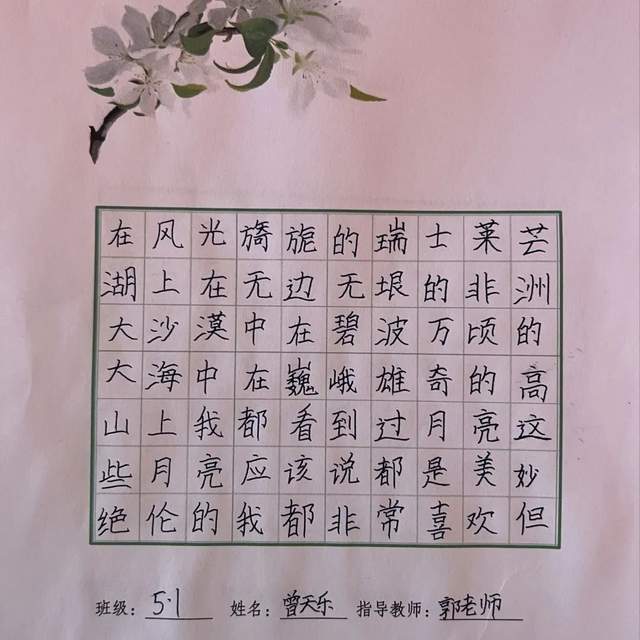 在风光旖旎的瑞士莱芒
湖上在无边无垠的非洲
大沙漠中在碧波万顷的
大海中在巍峨雄奇的高
山上我都看到过月亮这
些月亮应该说都是美妙
绝伦的我都非常喜欢但
班级：5.1 姓名：曾天乐 指导教师：郭老师